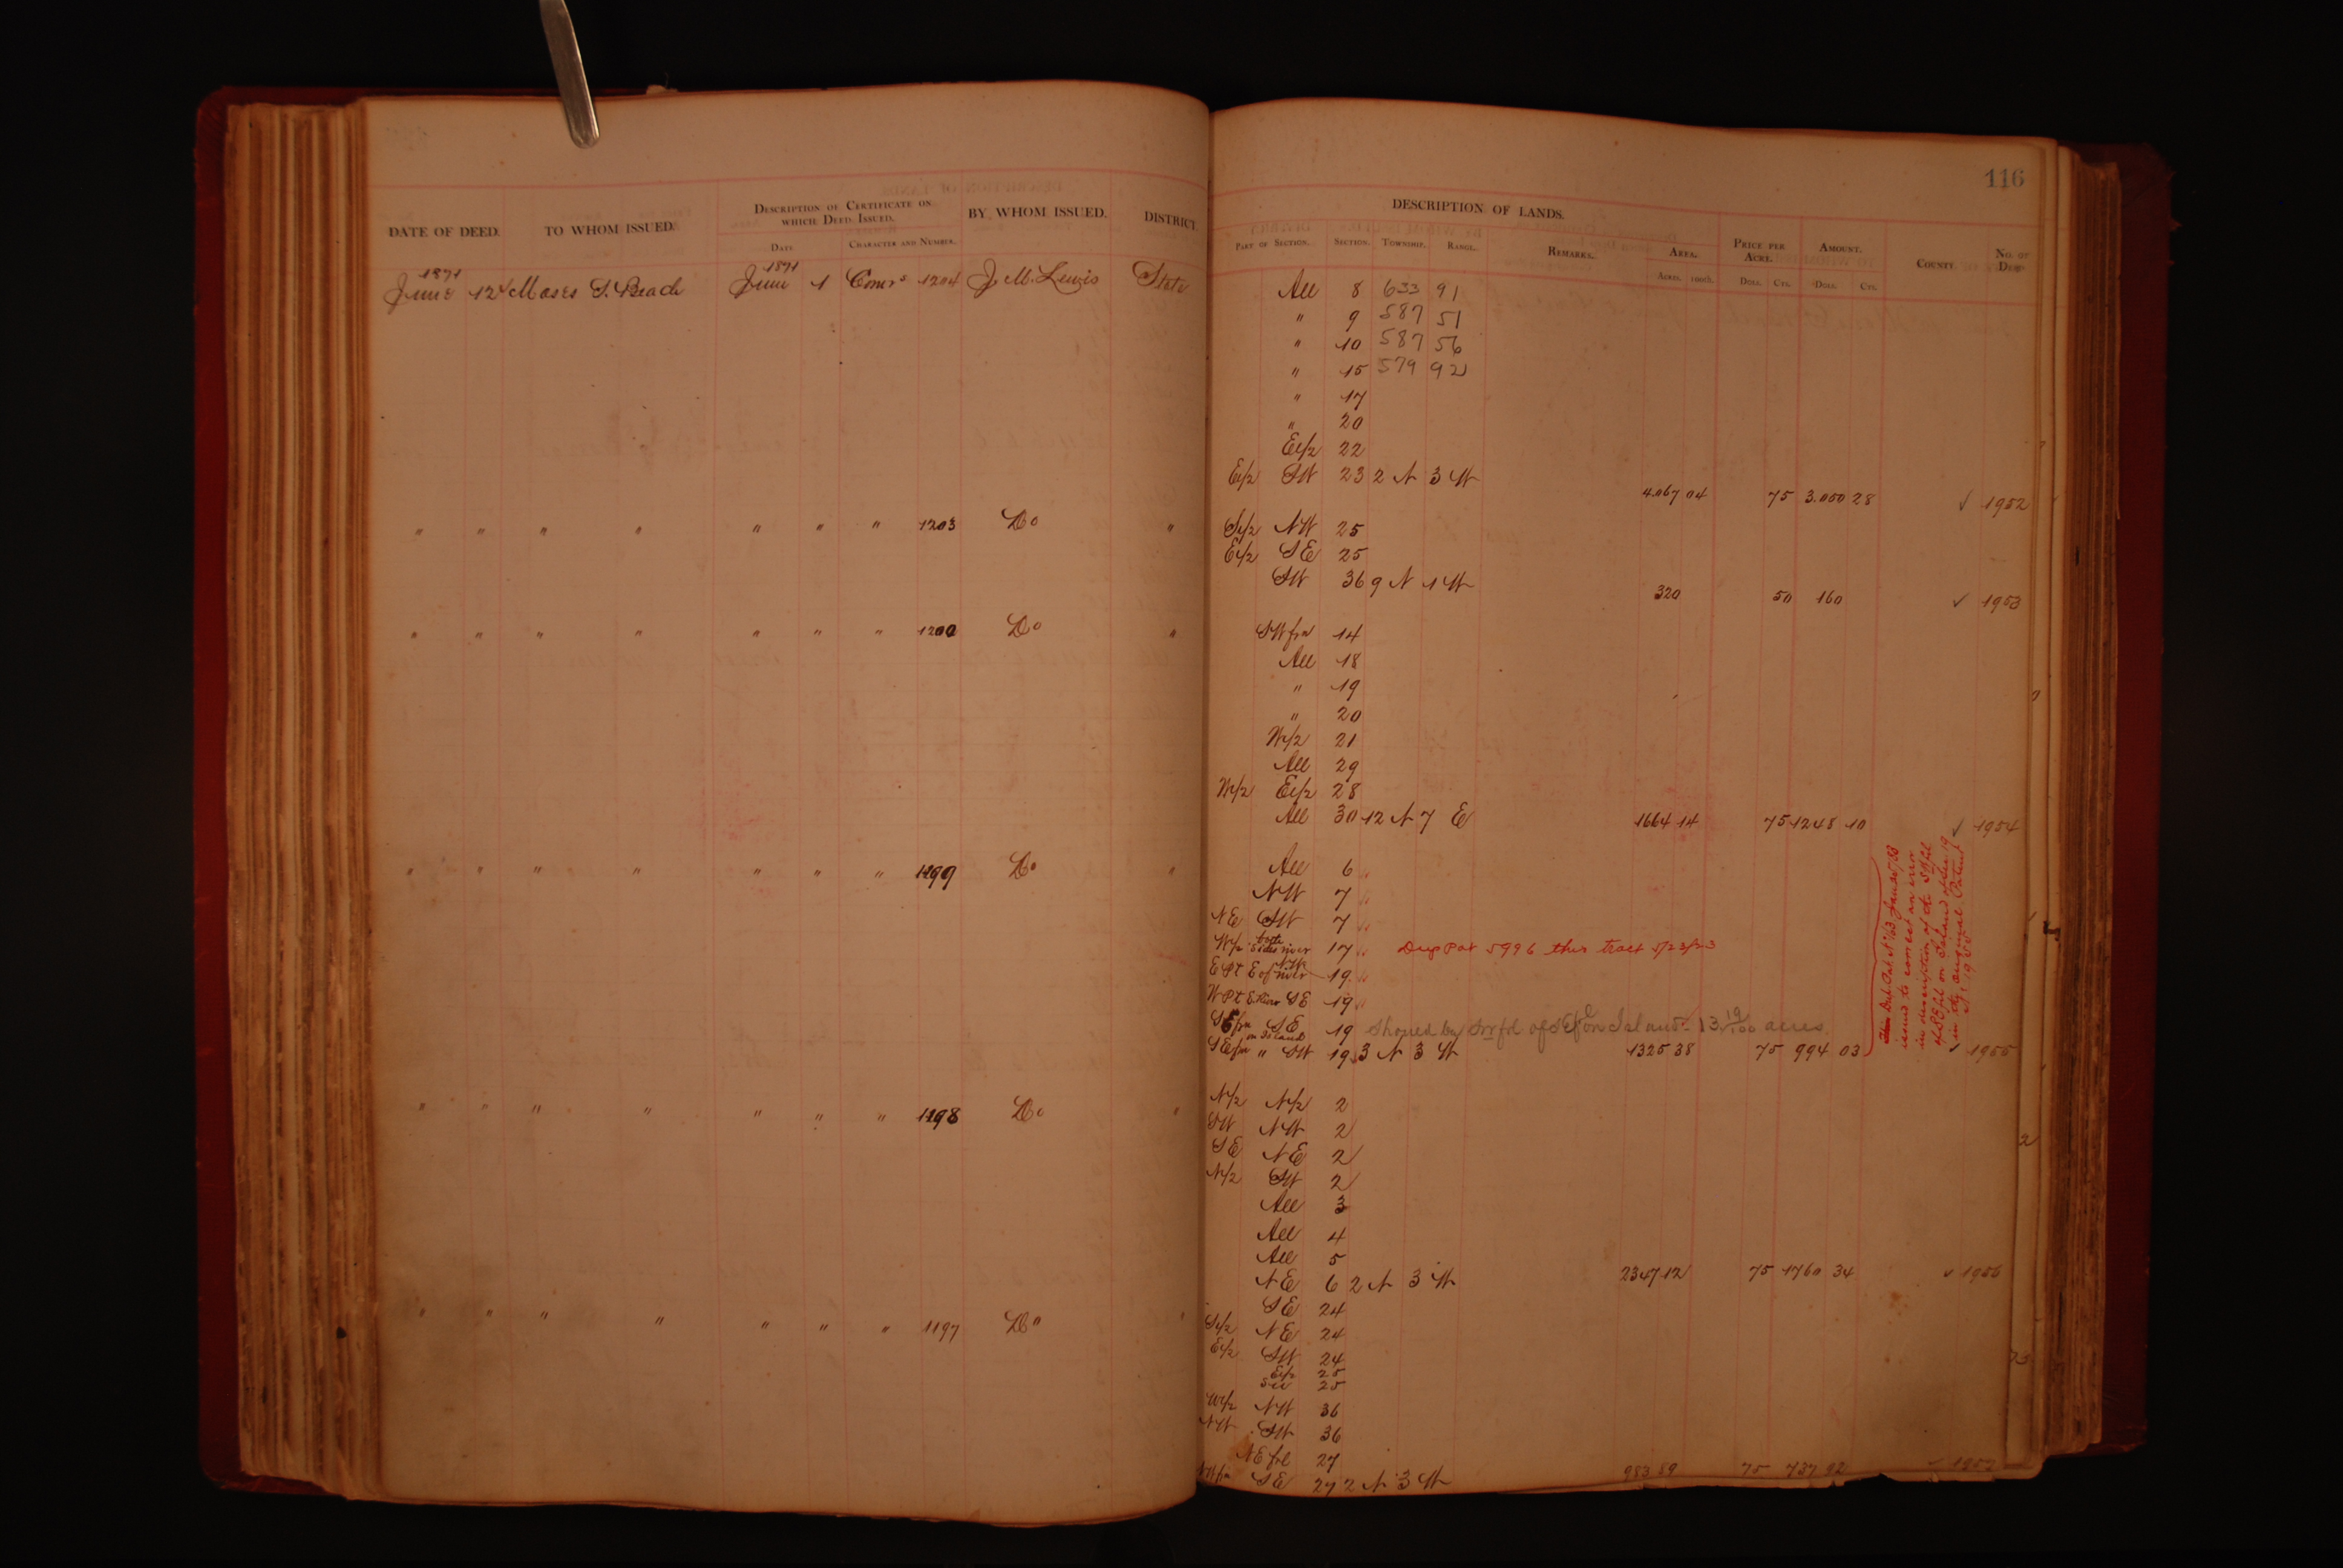 116
DATE OF DEED. TO WHOM ISSUED. DESCRIPTION OF CERTIFICATE ON WHICH DEED ISSUED. BY WHOM ISSUED. DISTRICT.
DATE CHARACTER AND NUMBER.
DESCRIPTION OF LANDS.
PART OF SECTION. SECTION. TOWNSHIP. RANGE. REMARKS. AREA. PRICE PER ACRE. AMOUNT. COUNTY NO. OF DEED
ACRES. 100th. DOLL. CTS. DOLL. CTS.
1871 1871
June 12 Moses S. Beach June 1 Comrs 1204 J. M. Lewis State
All 8 633 91
" 9 587 51
" 10 587 56
" 15 579 92
" 17
" 20
E1/2 22
E1/2 SW 23 2 N 3 W 4.067 04 75 3.050 28 ✓ 1952
" " " " " " " 1203 Do "
S1/2 NW 25
E1/2 SE 25
SW 36 9 N 1 W 320 50 160 ✓ 1953
" " " " " " " 1200 Do "
SW frl 14
All 18
" 19
" 20
W1/2 21
All 29
W1/2 E1/2 28
All 30 12 N 7 E 1664 14 75 1248 10 ✓ 1954
" " " " " " " 1199 Do "
All 6 "
NW 7 "
NE SW 7 "
W1/2 both sides river 17 " Dup Pat 5996 this tract 5/23/23
E Pt E of river NW 19 "
W Pt E. River SE 19 "
SE frl SE 19 Should be SW frl of SE/4 on Island - 13 19/100 acres.
on Island
SE frl " SW 19 3 N 3 W 1325 38 75 994 03 ✓ 1955
issued to correct an error
in description of the SW frl
of SE frl on Island of Sec 19
in the original Patent
1955
" " " " " " " 1198 Do "
N1/2 N1/2 2
SW NW 2
SE NE 2
N1/2 SW 2
All 3
All 4
All 5
NE 6 2 N 3 W 2347 12 75 1760 34 ✓ 1956
" " " " " " " 1197 Do "
SE 24
S1/2 NE 24
E1/2 SW 24
E1/2 25
SW 25
W1/2 NW 36
NW SW 36
NE frl 27
NW frl SE 27 2 N 3 W 983 89 75 737 92 ✓ 1957